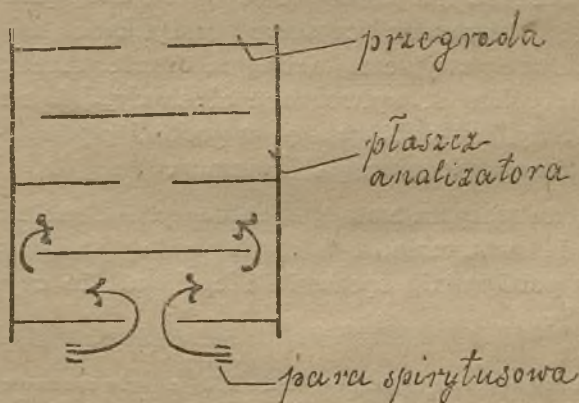 przegroda
płaszcz
analizatora
para spirytusowa